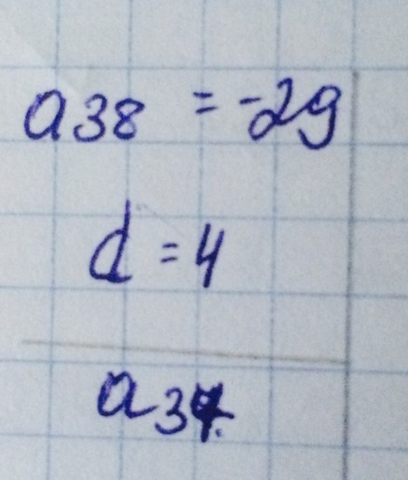 a38 = -29
d = 4
a37